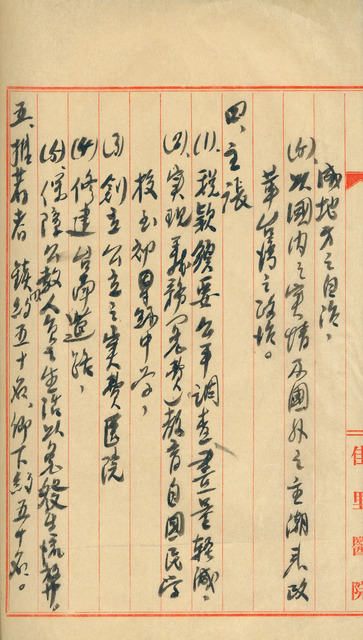 成地方之自治,
(6)、以國內之實情及國外之主潮來政
革台灣之政治。
四、主張
(1)、稅款須要公平調查盡量輕減。
(2)、實現義務(免費)教育自國民学
校至初中為,
(3)創立公立之實費医院
(4)修建台南道路,
(5)、保障公教人員之生活以免發生流弊。
五、推薦者 鎮內約五十名、鄉下約五十名。
佳里醫院